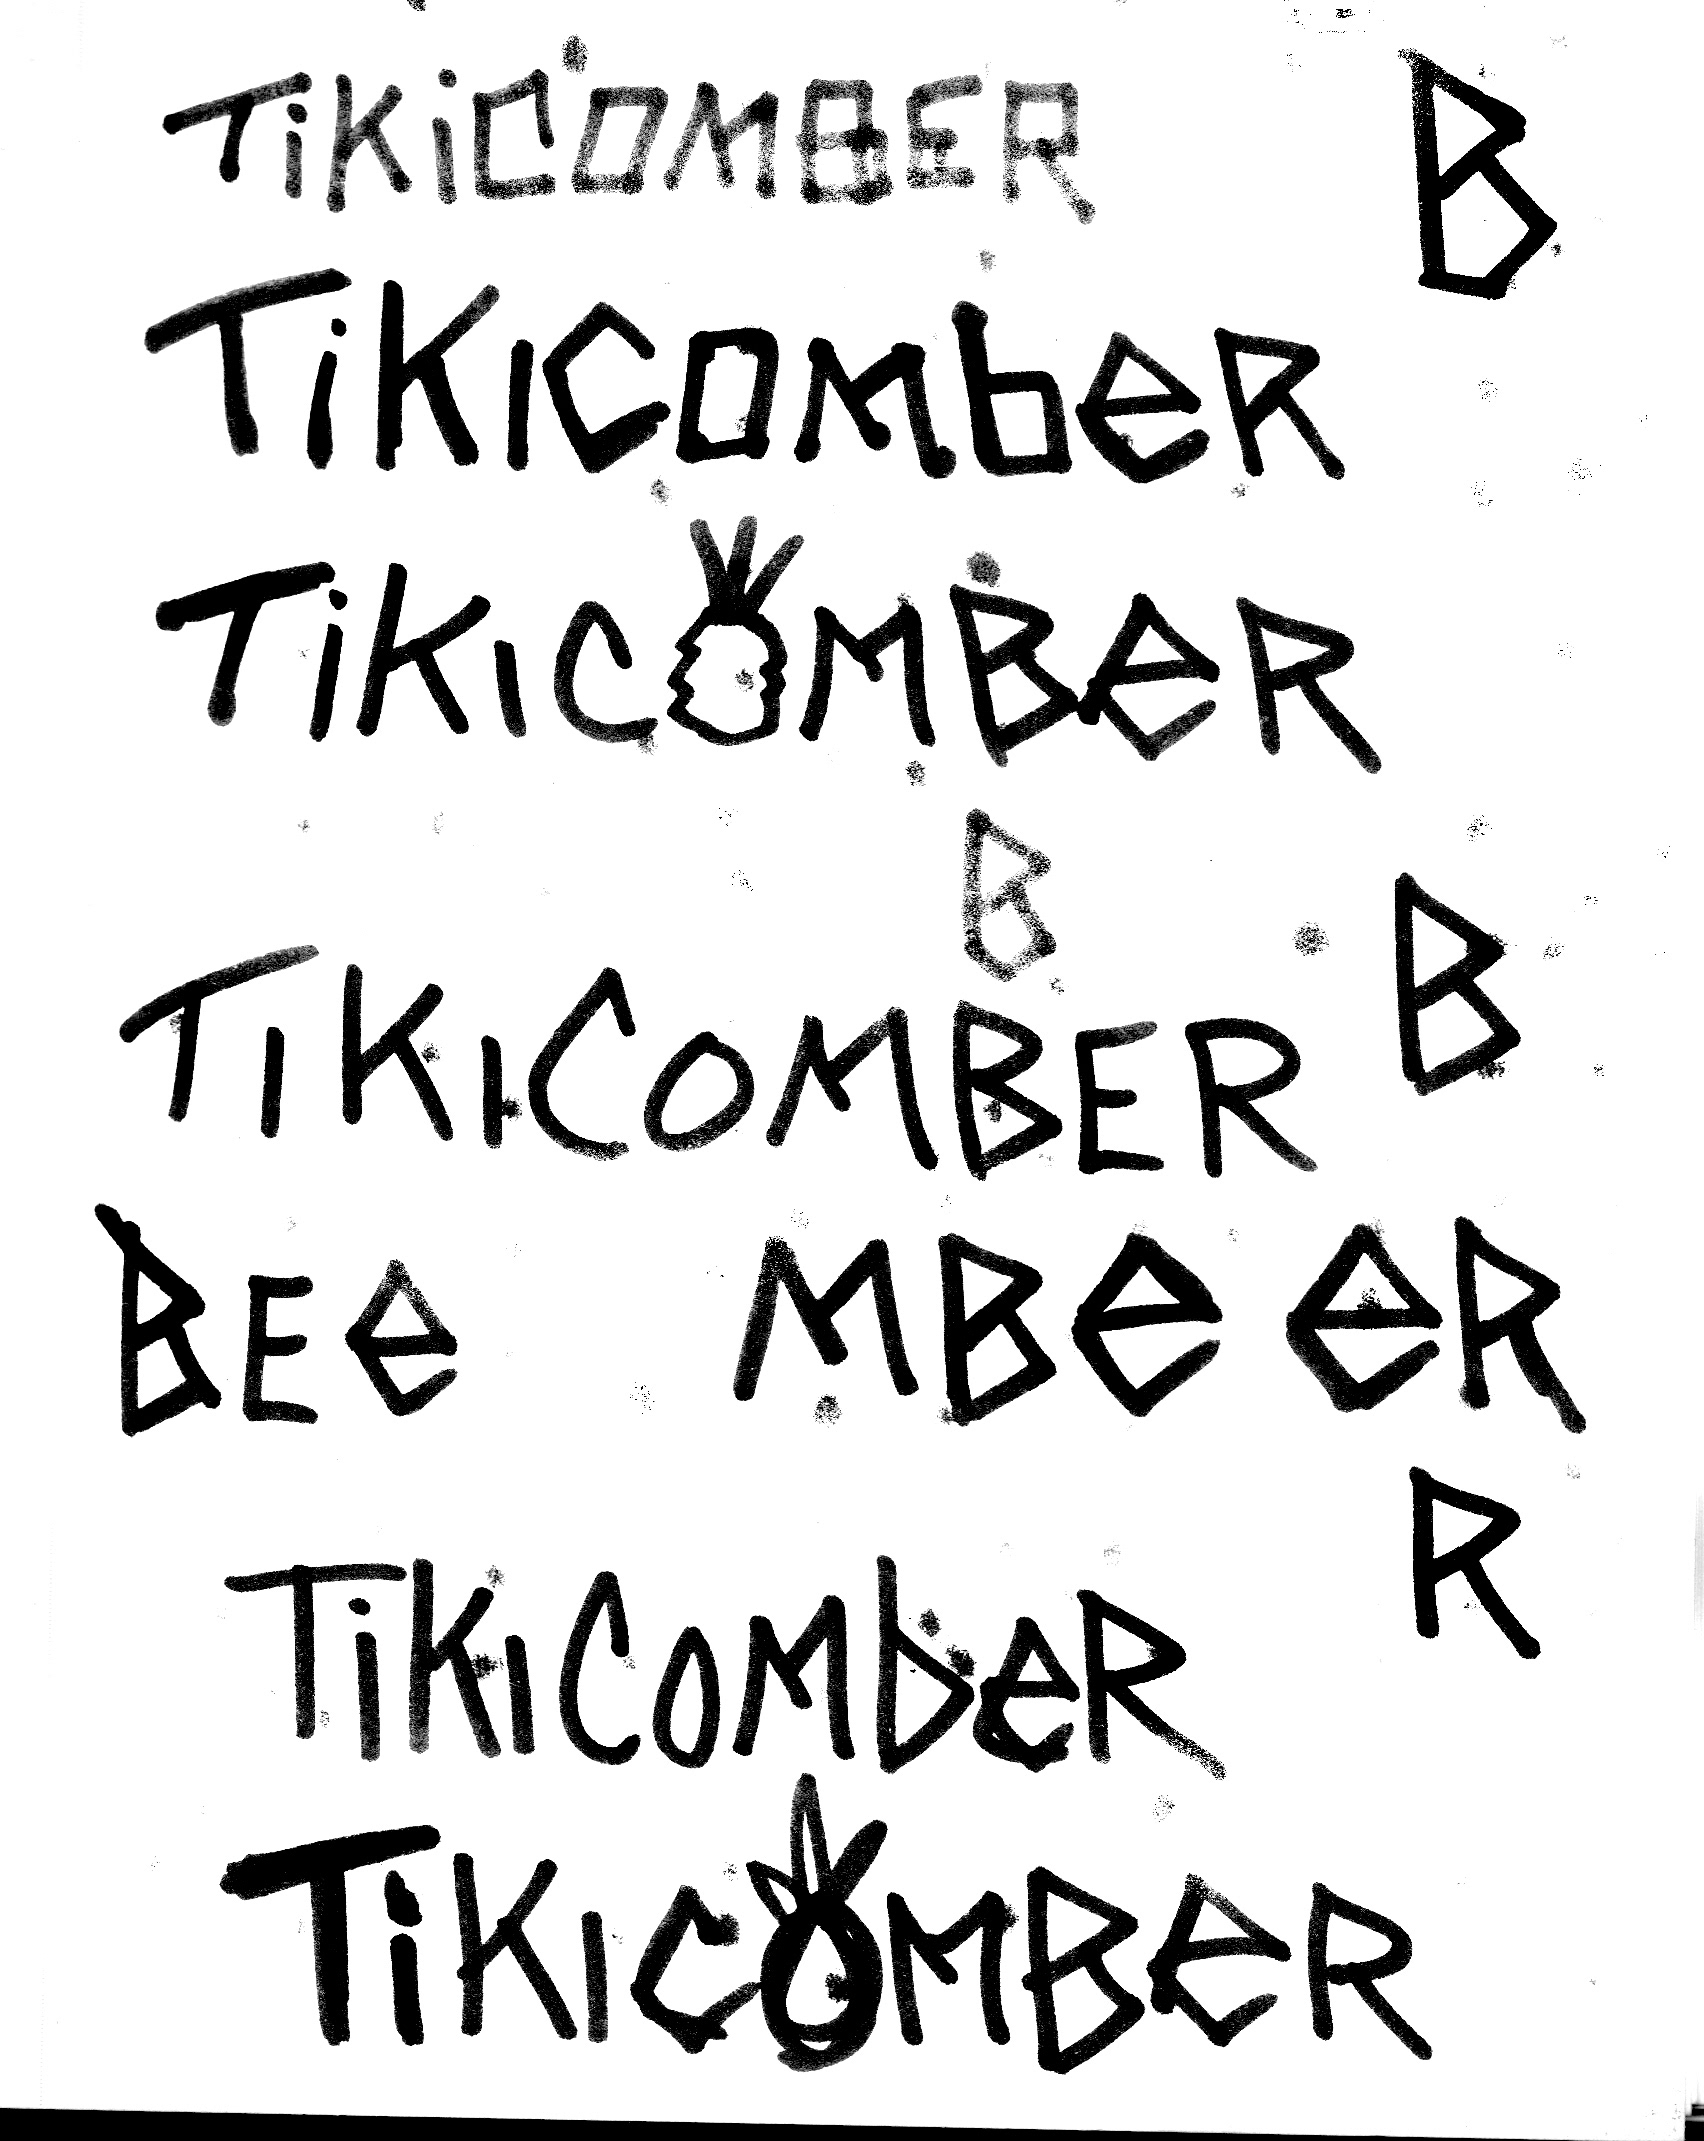 TiKiCOMBER B
TiKıCOmbeR
TiKıCOMBeR
B
TIKICOMBER B
BEe MBe eR
R
TiKıCOMbeR
TiKıCOMBeR